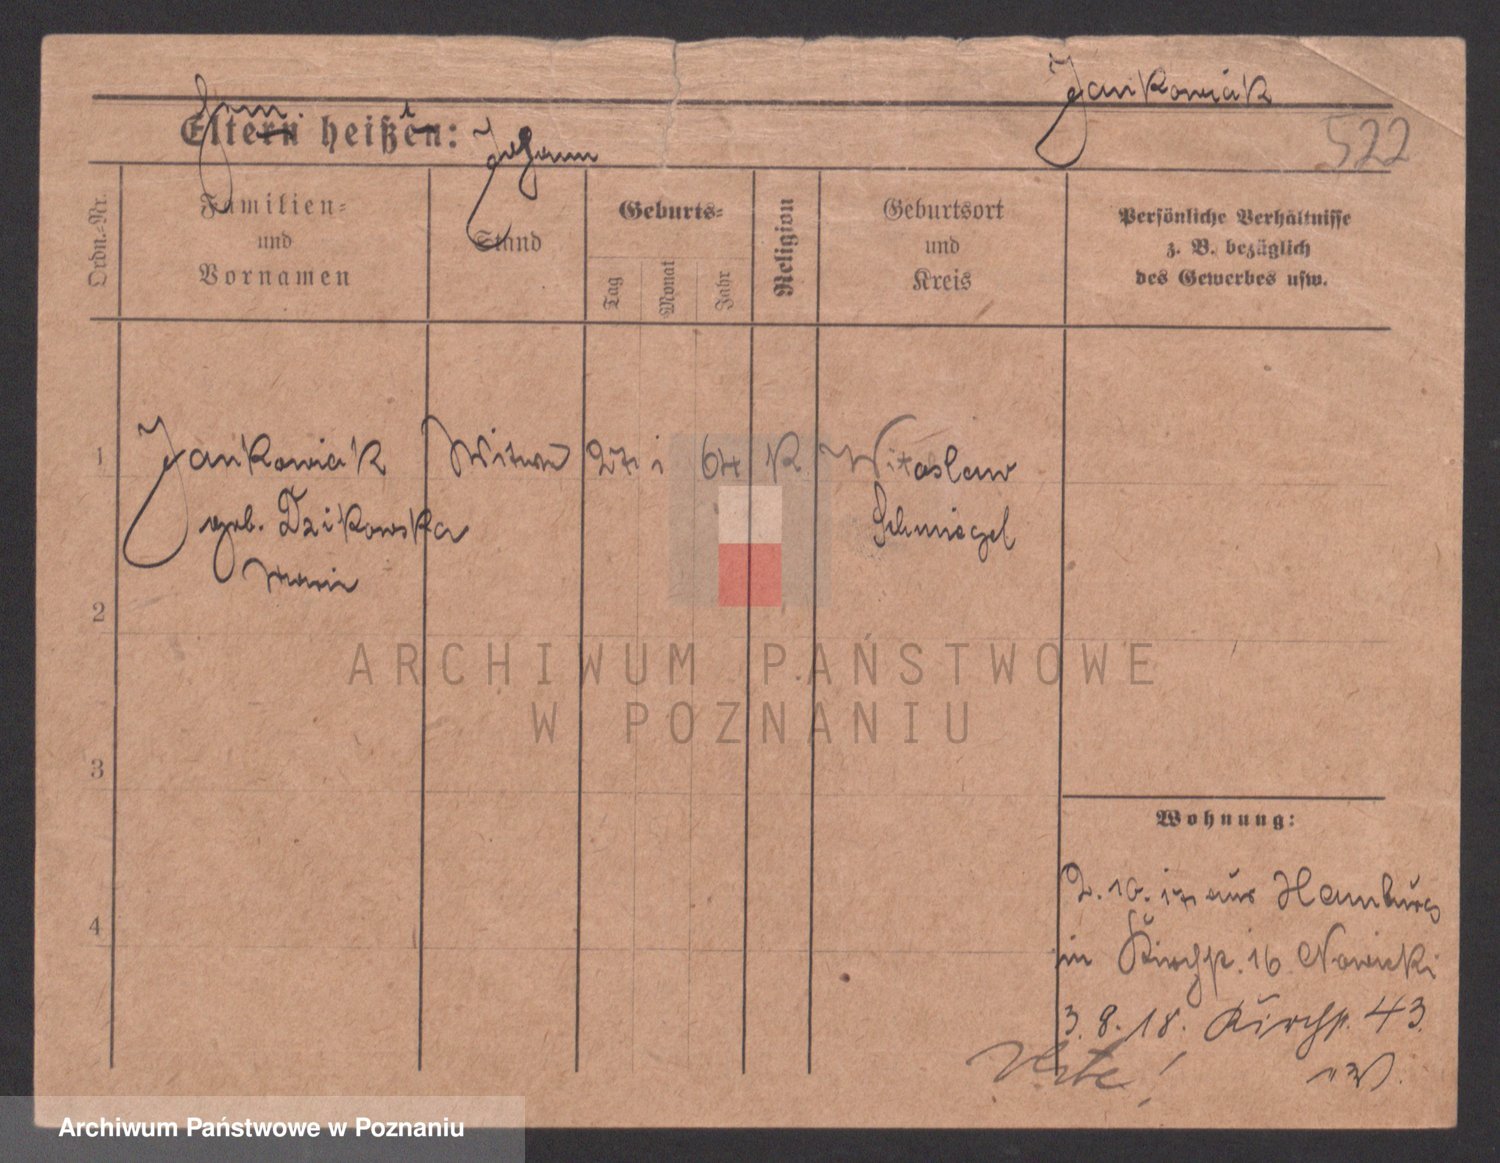 Jankowiak
522
Eltern heißen: Johann
Ordn.-Nr.
Familien-
und
Vornamen
Stand
Geburts-
Tag
Monat
Jahr
Religion
Geburtsort
und
Kreis
Persönliche Verhältnisse
z. B. bezüglich
des Gewerbes usw.
1 Jankowiak Witwe 27 1 64 K Witoslaw
geb. Dzikowska Schmiegel
Marie
2
3
4
ARCHIWUM PAŃSTWOWE
W POZNANIU
Wohnung:
2.10.17 aus Hamburg
in Kirchp. 16 Nowicki
3.8.18. Kirchp. 43
Archiwum Państwowe w Poznaniu